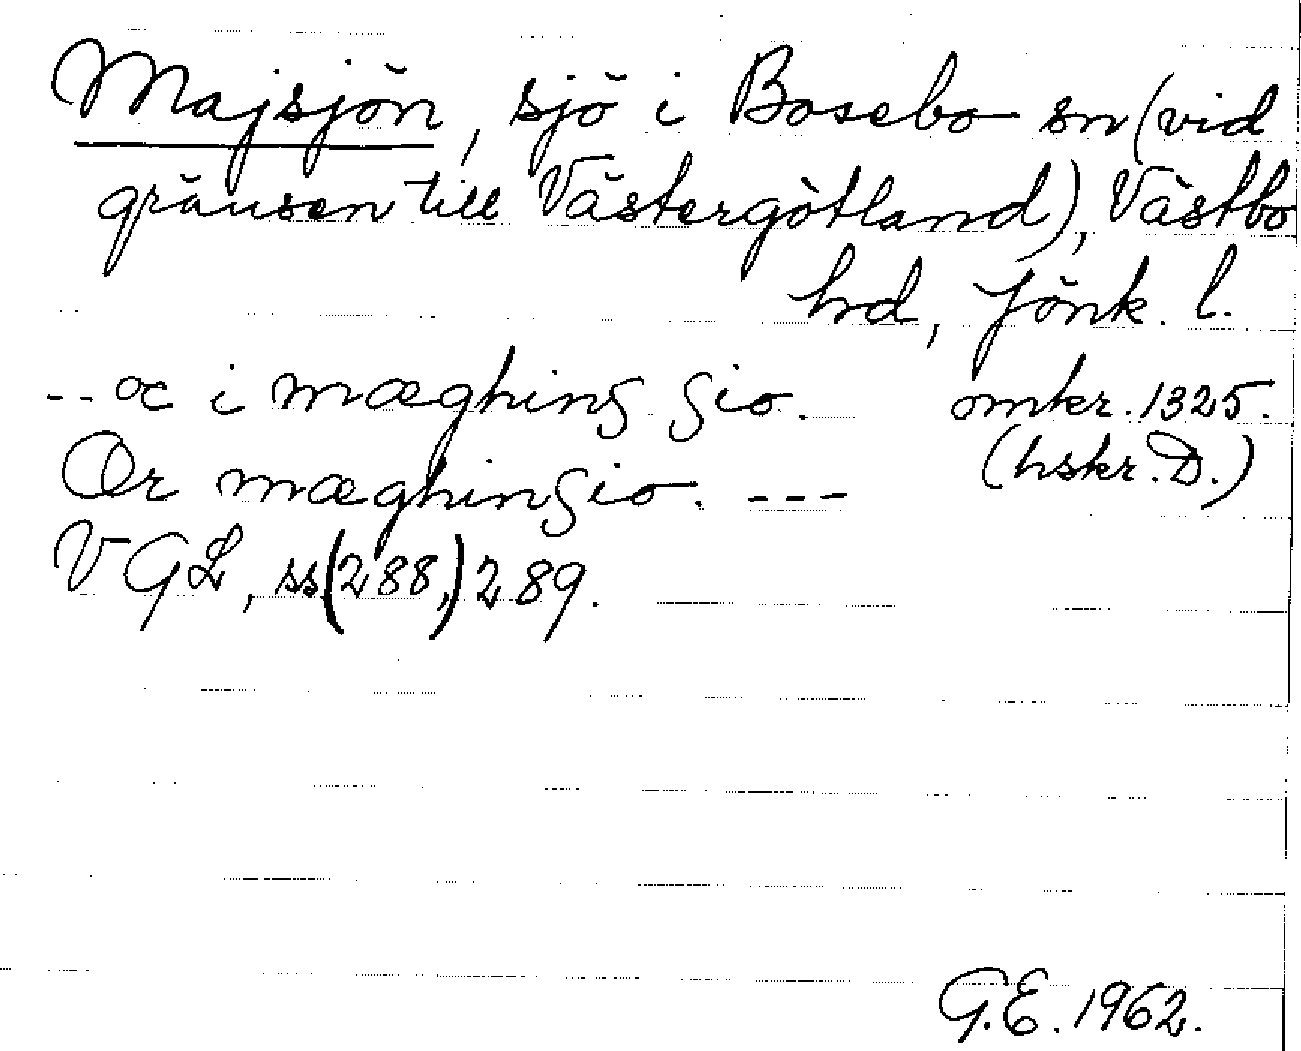 Majsjön, sjö i Bosebo sn (vid
gränsen till Västergötland), Västbo
hd, Jönk. l.
-- oc i mæghing sio. omkr. 1325.
Or mæghinsio. --- (hskr. D.)
VGL, ss. (288,) 289.
G.E. 1962.